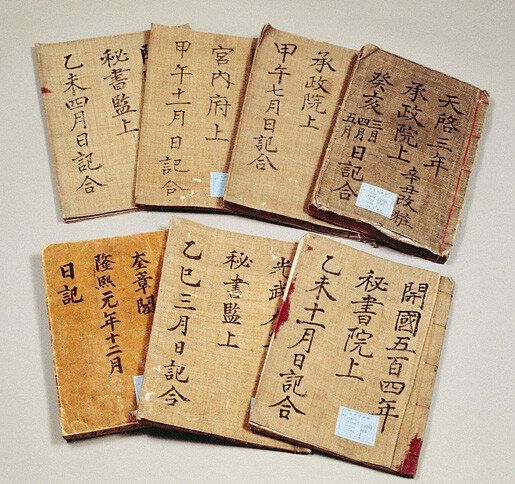 天啓三年
承政院上 辛丑改粧
癸亥三月四月五月日記合
承政院上
甲午七月日記合
宮內府上
甲午十一月日記合
開
秘書監上
乙未四月日記合
開國五百四年
秘書院上
乙未十一月日記合
光武
秘書監上
乙巳三月日記合
奎章閣
隆熙元年十二月
日記